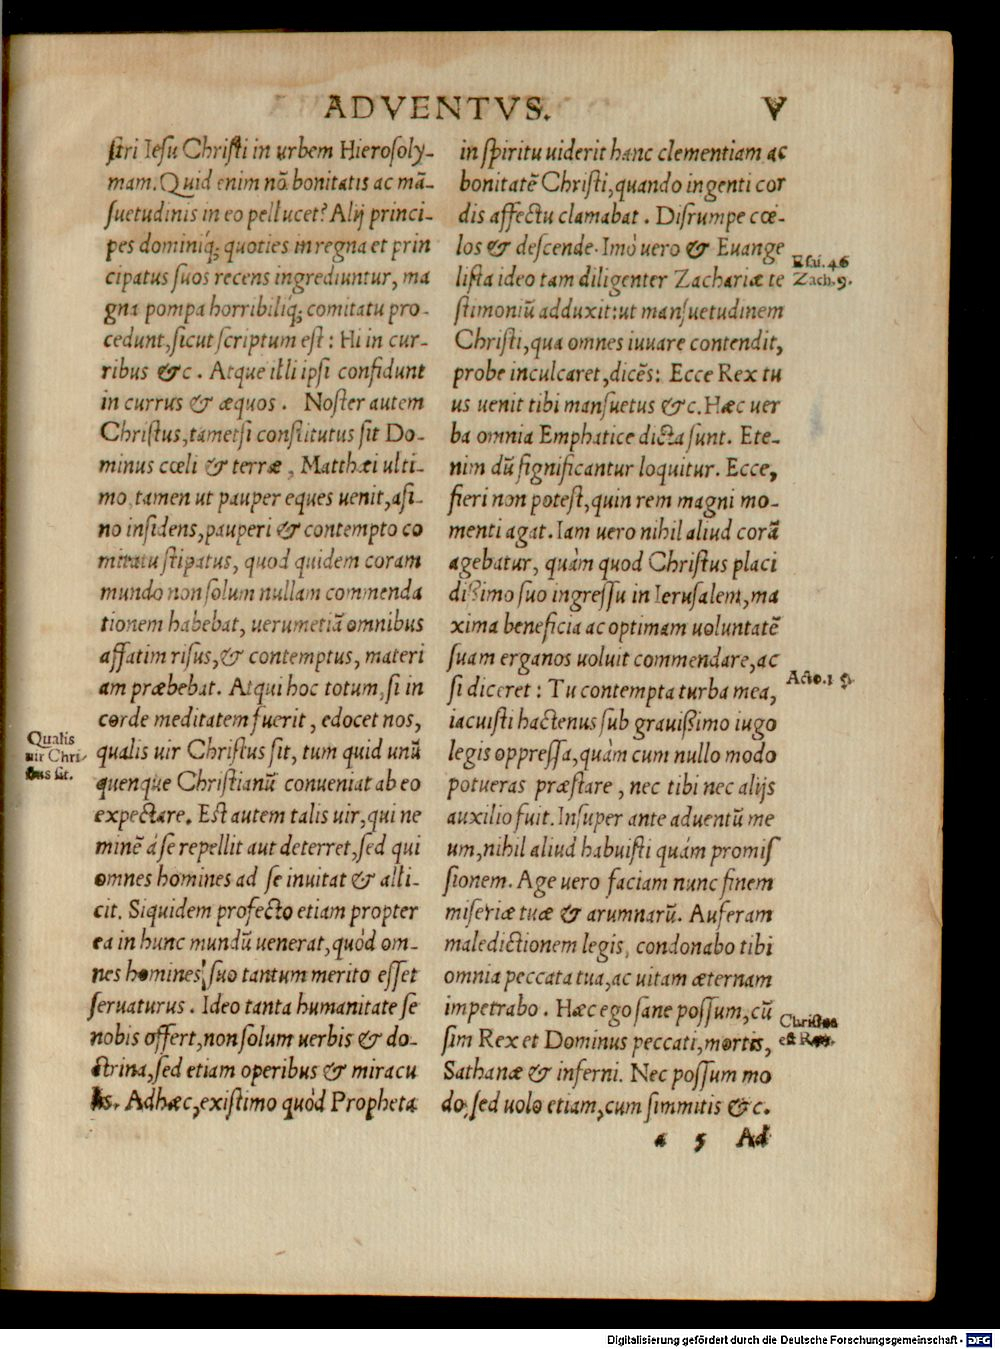 ADVENTVS. V
stri Iesu Christi in urbem Hierosoly-
mam. Quid enim nō bonitatis ac mā-
suetudinis in eo pellucet? Alij princi-
pes dominiq́; quoties in regna et prin
cipatus suos recens ingrediuntur, ma
gna pompa horribiliq́; comitatu pro-
cedunt, sicut scriptum est: Hi in cur-
ribus &c. Atque illi ipsi confidunt
in currus & æquos. Noster autem
Christus, tametsi constitutus sit Do-
minus cœli & terræ, Matthæi ulti-
mo tamen ut pauper eques uenit, asi-
no insidens, pauperi & contempto co
mitatu stipatus, quod quidem coram
mundo non solum nullam commenda
tionem habebat, uerumetiā omnibus
affatim risus, & contemptus, materi
am præbebat. Atqui hoc totum, si in
corde meditatem fuerit, edocet nos,
Qualis
uir Chri
stus sit.
qualis uir Christus sit, tum quid unū
quenque Christianū conueniat ab eo
expectare. Est autem talis uir, qui ne
minē á se repellit aut deterret, sed qui
omnes homines ad se inuitat & alli-
cit. Siquidem profecto etiam propter
ea in hunc mundū uenerat, quòd om-
nes homines suo tantum merito esset
seruaturus. Ideo tanta humanitate se
nobis offert, non solum uerbis & do-
ctrina, sed etiam operibus & miracu
lis. Adhæc, existimo quòd Propheta
in spiritu uiderit hanc clementiam ac
bonitatē Christi, quando ingenti cor
dis affectu clamabat. Disrumpe cœ-
los & descende. Imò uero & Euange
Esai. 46
Zach. 9.
lista ideo tam diligenter Zachariæ te
stimoniū adduxit: ut mansuetudinem
Christi, qua omnes iuuare contendit,
probe inculcaret, dicēs: Ecce Rex tu
us uenit tibi mansuetus &c. Hæc uer
ba omnia Emphatice dicta sunt. Ete-
nim dū significantur loquitur. Ecce,
fieri non potest, quin rem magni mo-
menti agat. Iam uero nihil aliud corā
agebatur, quàm quod Christus placi
dißimo suo ingressu in Ierusalem, ma
xima beneficia ac optimam uoluntatē
suam erga nos uoluit commendare, ac
Acto. 15.
si diceret: Tu contempta turba mea,
iacuisti hactenus sub grauißimo iugo
legis oppressa, quàm cum nullo modo
potueras præstare, nec tibi nec alijs
auxilio fuit. Insuper ante aduentū me
um, nihil aliud habuisti quám promis
sionem. Age uero faciam nunc finem
miseriæ tuæ & ærumnarū. Auferam
maledictionem legis, condonabo tibi
omnia peccata tua, ac uitam æternam
impetrabo. Hæc ego sane possum, cū
Christus
est Rex.
sim Rex et Dominus peccati, mortis,
Sathanæ & inferni. Nec possum mo
do, sed uolo etiam, cum sim mitis &c.
a 5 Ad
Digitalisierung gefördert durch die Deutsche Forschungsgemeinschaft - DFG